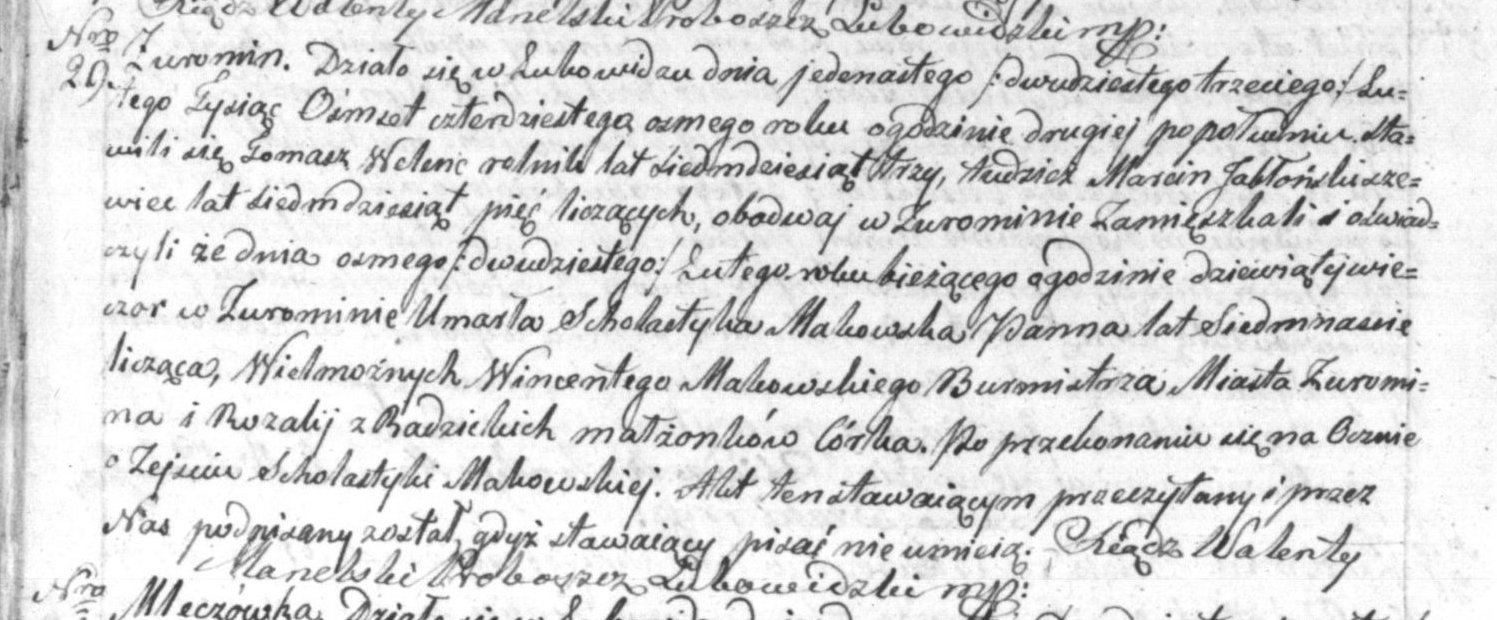 Ksiądz Walenty Manelski Proboszcz Lubowidzki mp:
Nro 29. Zuromin. Działo się w Lubowidzu dnia jedenastego /:dwudziestego trzeciego:/ Lu=
tego Tysiąc Ośmset czterdziestego osmego roku o godzinie drugiej popołudniu. Sta=
wili się Tomasz Welenc rolnik lat siedmdziesiąt trzy, tudzież Marcin Jabłoński sze=
wiec lat siedmdziesiąt pięć liczących, obadwaj w Zurominie Zamięszkali i oświad=
czyli że dnia osmego /:dwudziestego:/ Lutego roku bieżącego o godzinie dziewiątej wie=
czor w Zurominie Umarła Scholastyka Makowska Panna lat Siedmnascie
licząca, Wielmożnych Wincentego Makowskiego Burmistrza Miasta Zuromi=
na i Rozalij z Radzickich małżonków Córka. Po przekonaniu się na Ocznie
o Zejsciu Scholastyki Makowskiej. Akt ten stawaiącym przeczytany i przez
Nas podpisany został, gdyż stawaiący pisać nie umieią. Ksiądz Walenty
Manelski Proboszcz Lubowidzki mp:
Nro Mleczówka. Działo się w